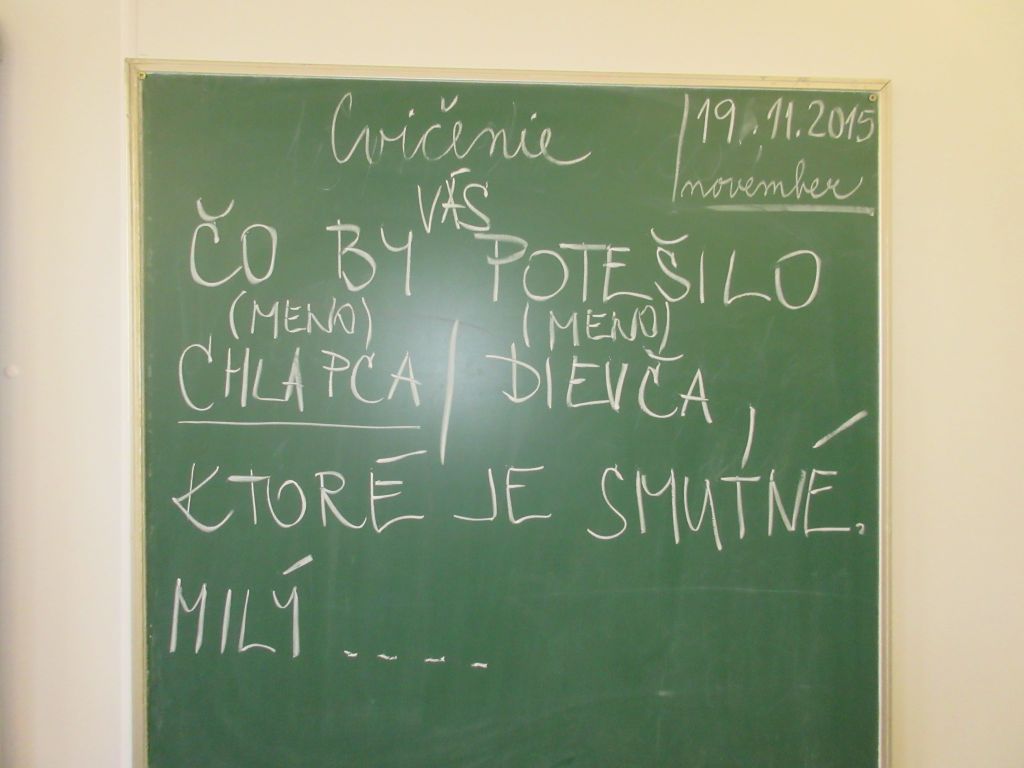 Cvičenie
19.11.2015
november
VÁS
ČO BY POTEŠILO
(MENO) (MENO)
CHLAPCA / DIEVČA,
KTORÉ JE SMUTNÉ.
MILÝ ----